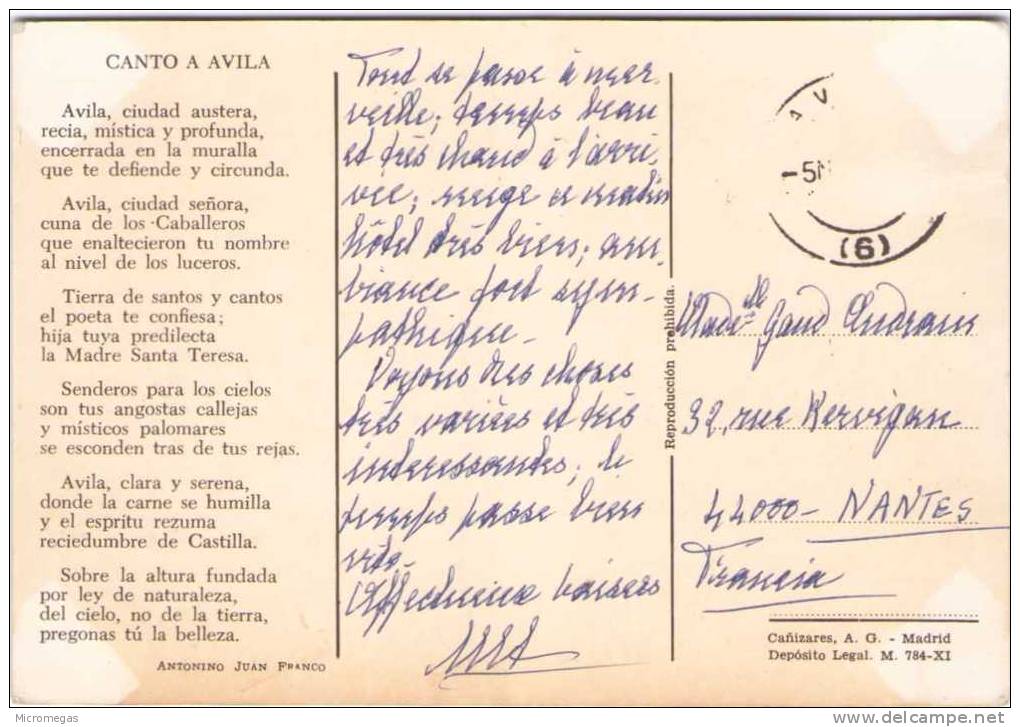 CANTO A AVILA
Avila, ciudad austera,
recia, mística y profunda,
encerrada en la muralla
que te defiende y circunda.
Avila, ciudad señora,
cuna de los Caballeros
que enaltecieron tu nombre
al nivel de los luceros.
Tierra de santos y cantos
el poeta te confiesa;
hija tuya predilecta
la Madre Santa Teresa.
Senderos para los cielos
son tus angostas callejas
y místicos palomares
se esconden tras de tus rejas.
Avila, clara y serena,
donde la carne se humilla
y el espritu rezuma
reciedumbre de Castilla.
Sobre la altura fundada
por ley de naturaleza,
del cielo, no de la tierra,
pregonas tú la belleza.
ANTONINO JUAN FRANCO
Tout se passe à mer-
veille; temps beau
et très chaud à l'arri-
vée; neige ce matin
hôtel très bien; am-
biance fort sym-
pathique.
Voyons des choses
très variées et très
intéressantes; le
temps passe bien
vite.
Affectueux baisers
Reproducción prohibida.
-5
(6)
Made lle Gaud
32, rue Kervégan
44000- NANTES
Francia
Cañizares, A. G. - Madrid
Depósito Legal. M. 784-XI
Micromegas
www.delcampe.net